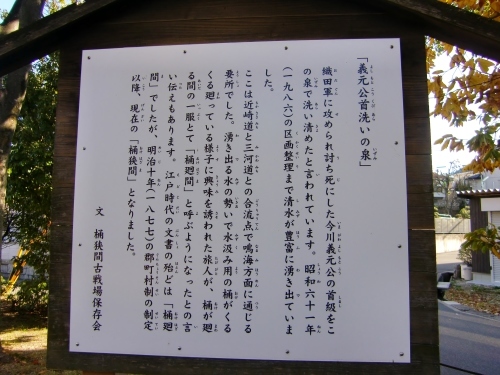 「義元公首洗いの泉」
織田軍に攻められ討ち死にした今川義元公の首級をこ
の泉で洗い清めたと言われています。昭和六十一年
(一九八六)の区画整理まで清水が豊富に湧き出ていま
した。
ここは近崎道と三河道との合流点で鳴海方面に通じる
要所でした。湧き出る水の勢いで水汲み用の桶がくる
くる廻っている様子に興味を誘われた旅人が、桶が廻
る間の一服とて「桶廻間」と呼ぶようになったとの言
い伝えもあります。江戸時代の文書の殆どは「桶廻
間」でしたが、明治十年(一八七七)の郡町村制の制定
以降、現在の「桶狭間」となりました。
文 桶狭間古戦場保存会